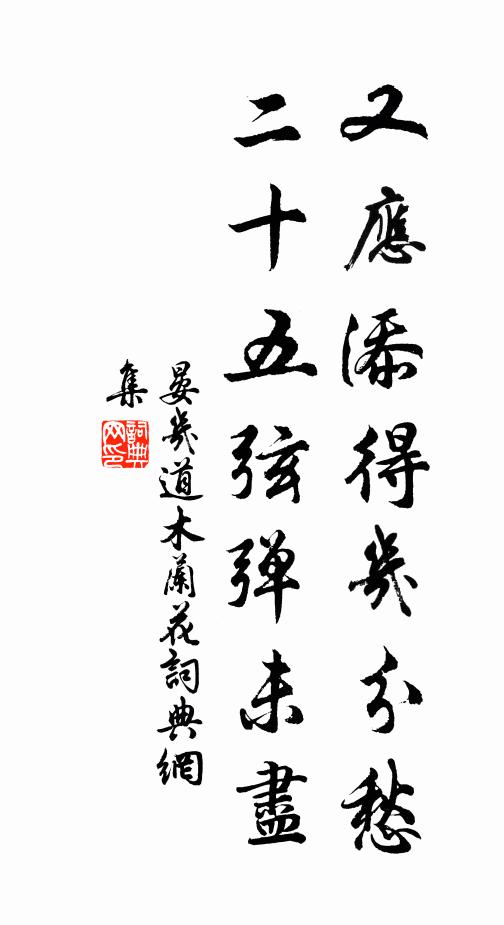 又應添得幾分愁
二十五弦彈未盡
晏幾道木蘭花詞典網
集
詞典
网印